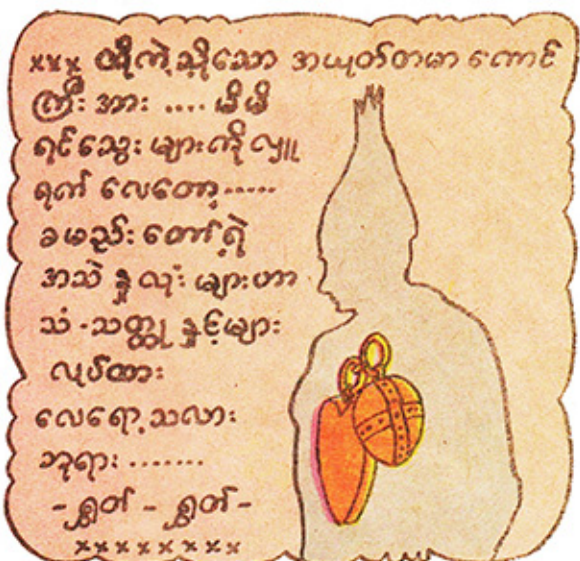 ××× ထိုကဲ့သို့သော အယုတ်တမာ ကောင်
ကြီး အား .... မိမိ
ရင်သွေး များကို လှူ
ရက် လေတော့.....
ခမည်း တော်ရဲ့
အသဲ နှလုံး များဟာ
သံ-သတ္တု နှင့်များ
လုပ်ထား
လေရော့သလား
ဘုရား .......
-ရွှတ် - ရွှတ်-
××××××××